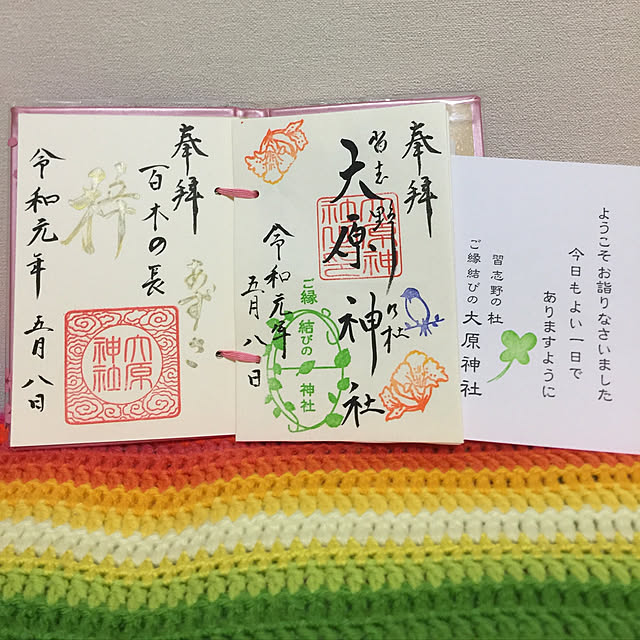 奉拝
百木の長
梓
あずさ
大原
神社
令和元年 五月八日
奉拝
習志野乃杜
大原神社
ご縁結びの神社
令和元年
五月八日
ようこそお詣りなさいました
今日もよい一日で
ありますように
習志野の杜
ご縁結びの大原神社